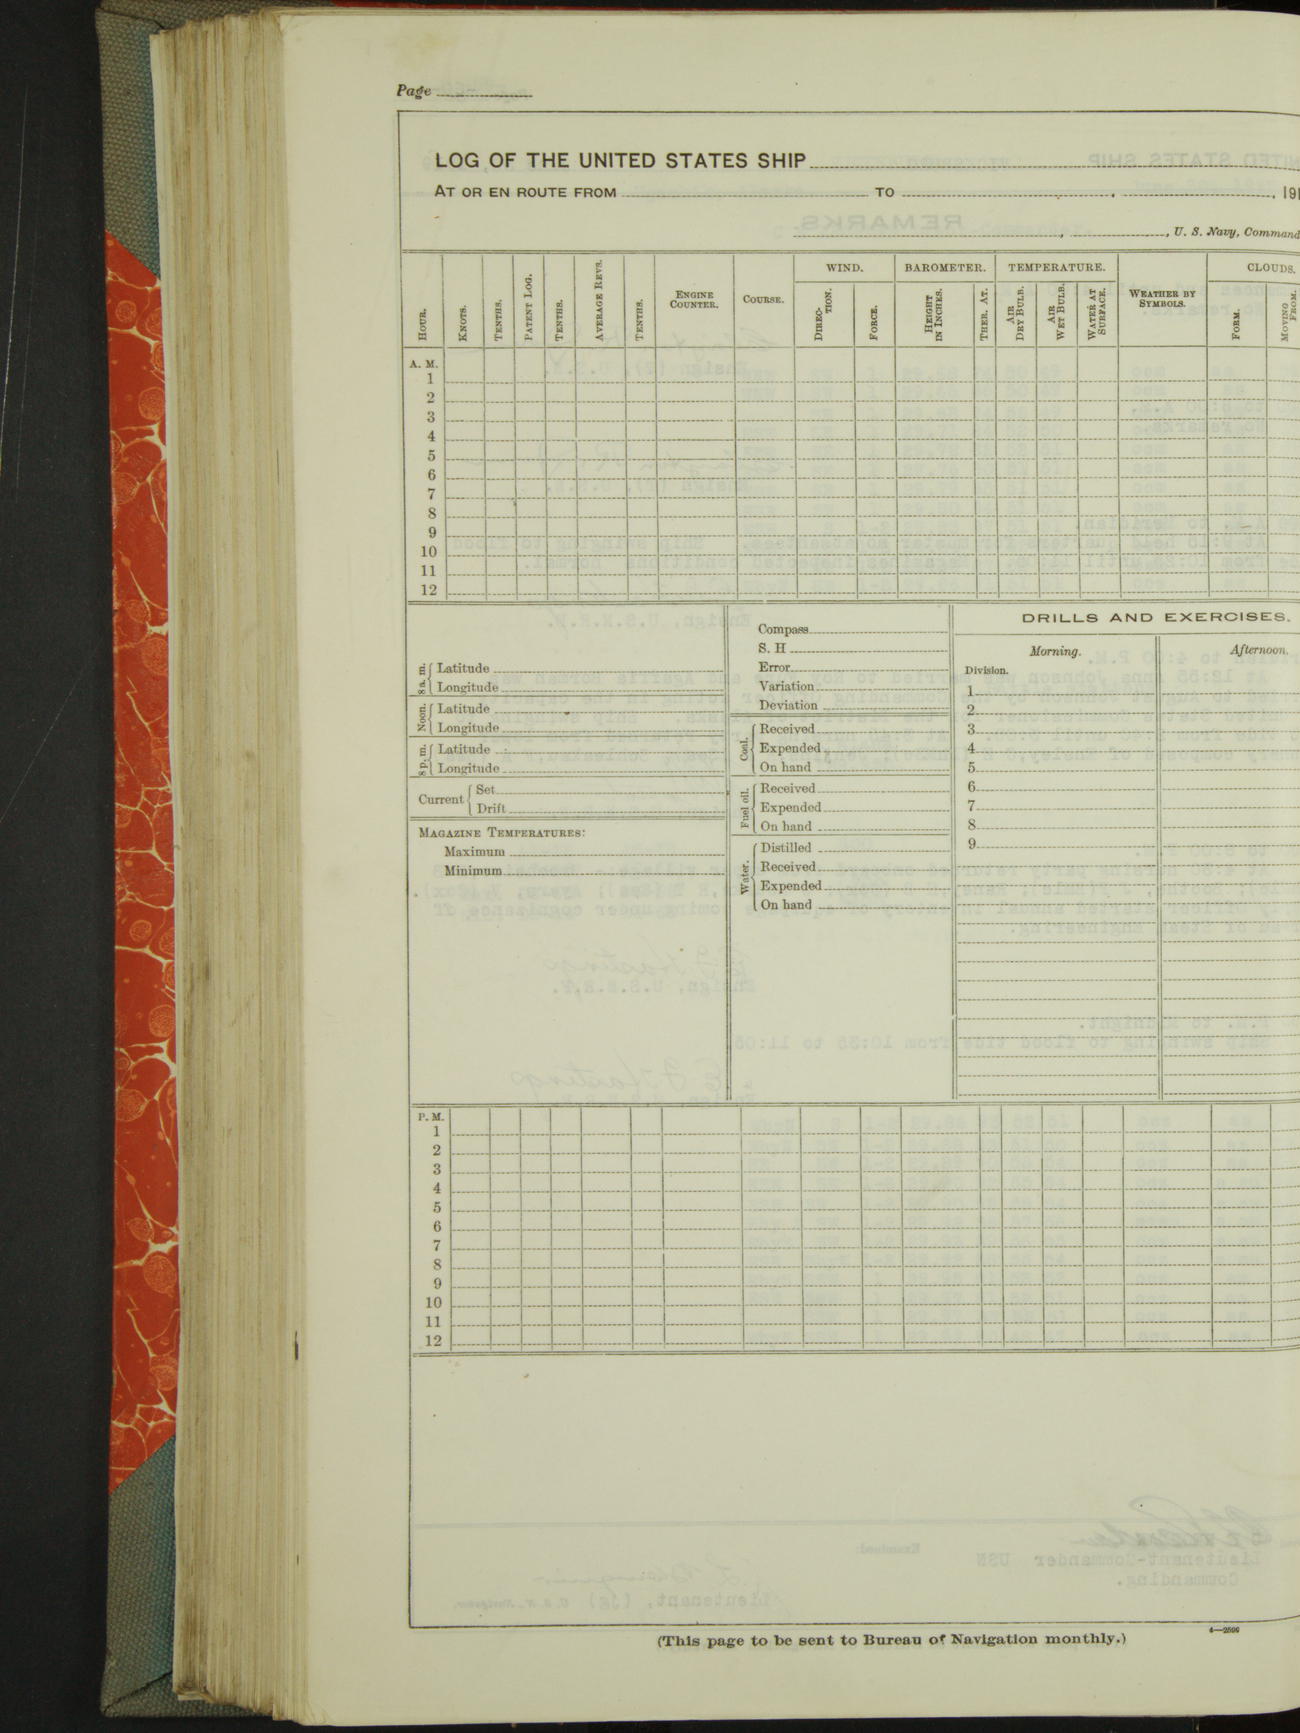 Page
LOG OF THE UNITED STATES SHIP
AT OR EN ROUTE FROM TO , , 191
, , U. S. Navy, Command
HOUR. KNOTS. TENTHS. PATENT LOG. TENTHS. AVERAGE REVS. TENTHS. ENGINE COUNTER. COURSE. WIND. BAROMETER. TEMPERATURE. WEATHER BY SYMBOLS. CLOUDS.
DIRECTION. FORCE. HEIGHT IN INCHES. THER. AT. AIR DRY BULB. AIR WET BULB. WATER AT SURFACE. FORM. MOVING FROM.
A. M.
1
2
3
4
5
6
7
8
9
10
11
12
8 a. m. Latitude
Longitude
Noon. Latitude
Longitude
8 p. m. Latitude
Longitude
Current Set
Drift
MAGAZINE TEMPERATURES:
Maximum
Minimum
Compass
S. H
Error
Variation
Deviation
Coal. Received
Expended
On hand
Fuel oil. Received
Expended
On hand
Water. Distilled
Received
Expended
On hand
DRILLS AND EXERCISES.
Morning. Afternoon.
Division.
1
2
3
4
5
6
7
8
9
P. M.
1
2
3
4
5
6
7
8
9
10
11
12
(This page to be sent to Bureau of Navigation monthly.)
4—2506